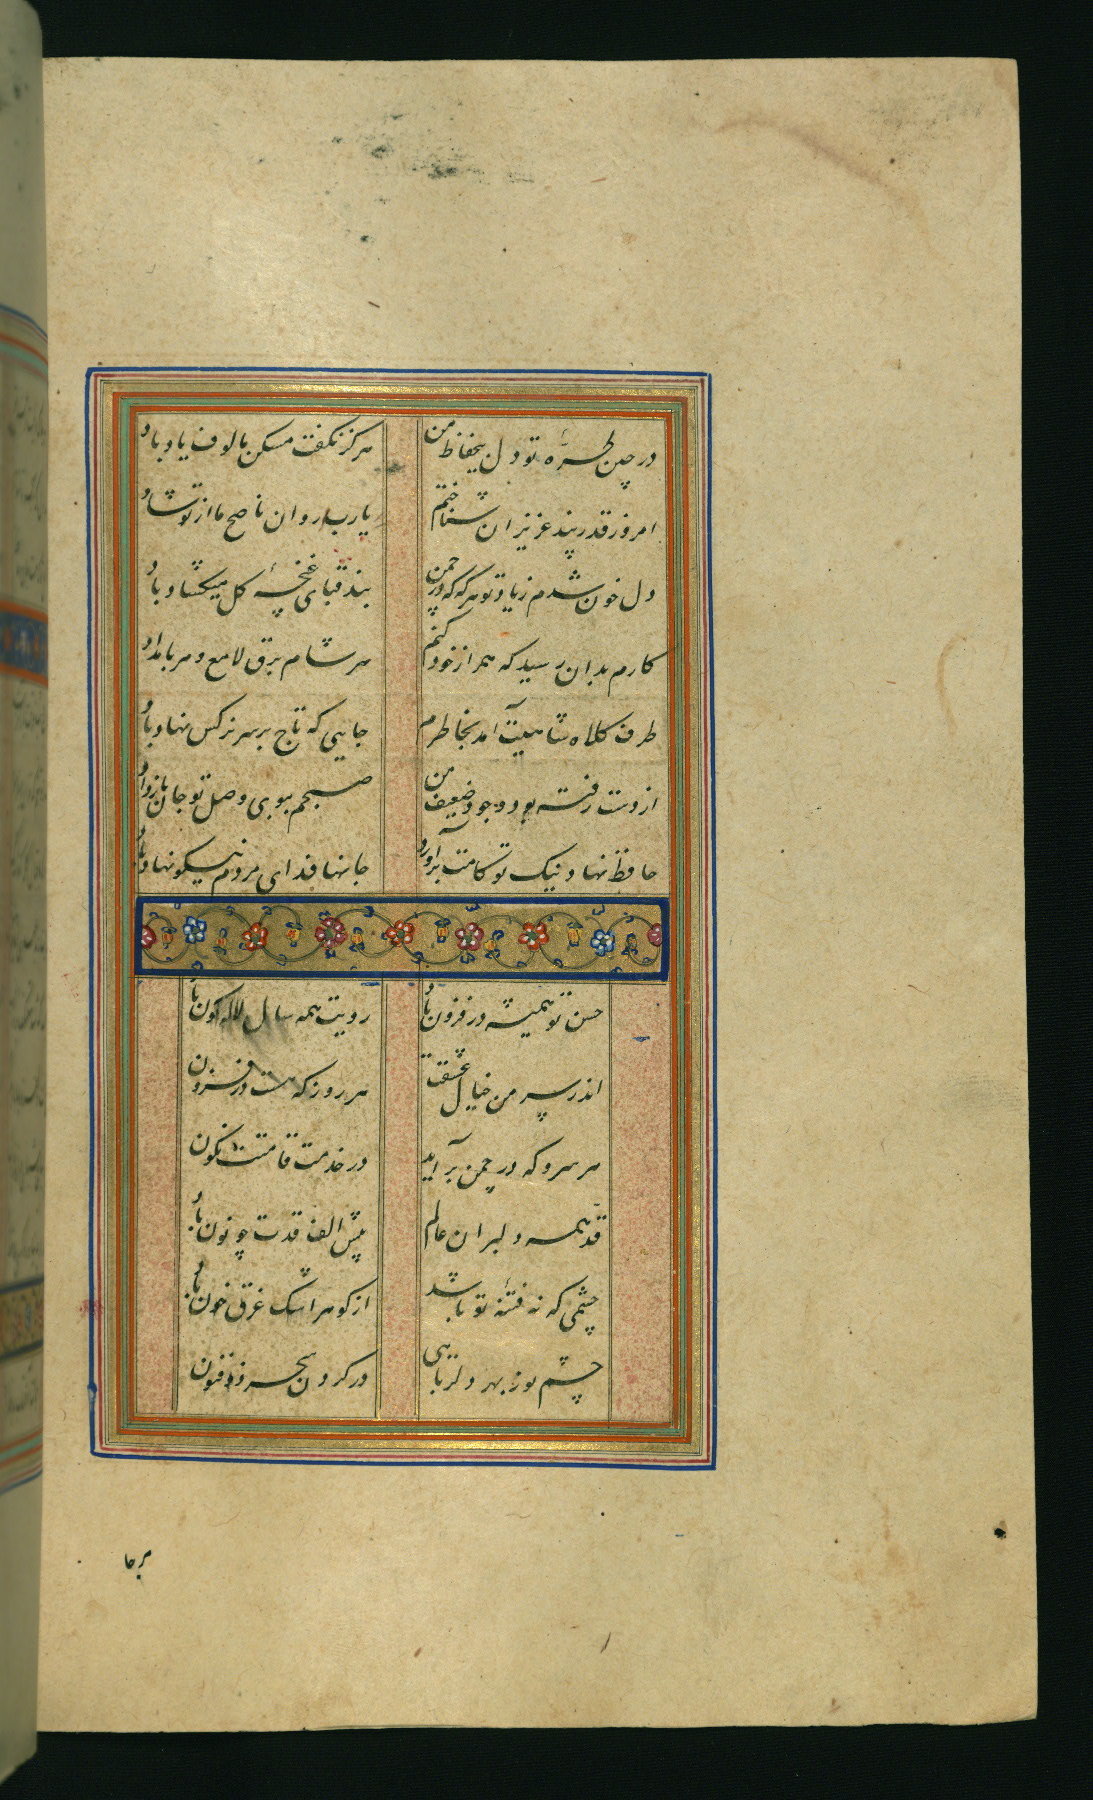 در چین طره تو دل بیحفاظ من هرگز نگفت مسکن مالوف یاد باد
امروز قدر پند عزیزان شناختم یا رب روان ناصح ما از تو شاد باد
دل خون شدم ز یاد تو هر گه که در چمن بند قبای غنچه گل میکشاد باد
کارم بدان رسید که همراز خود کنم هر شام برق لامع و هر بامداد باد
طرف کلاه شاهیت آمد بخاطرم جایی که تاج بر سر نرگس نهاد باد
از دست رفته بود وجود ضعیف من صبحم ببوی وصل تو جان باز داد باد
حافظ نهاد نیک تو کامت برآورد جانها فدای مردم نیکو نهاد باد
حسن تو همیشه در فزون باد رویت همه سال لاله گون باد
اندر سر من خیال عشقت هر روز که هست در فزون
هر سرو که در چمن برآید در خدمت قامتت نگون
قد همه دلبران عالم پیش الف قدت چو نون باد
چشمی که نه فتنه تو باشد از گوهر اشک غرق خون باد
چشم تو ز بهر دلربایی در کردن سحر ذوفنون
هر جا